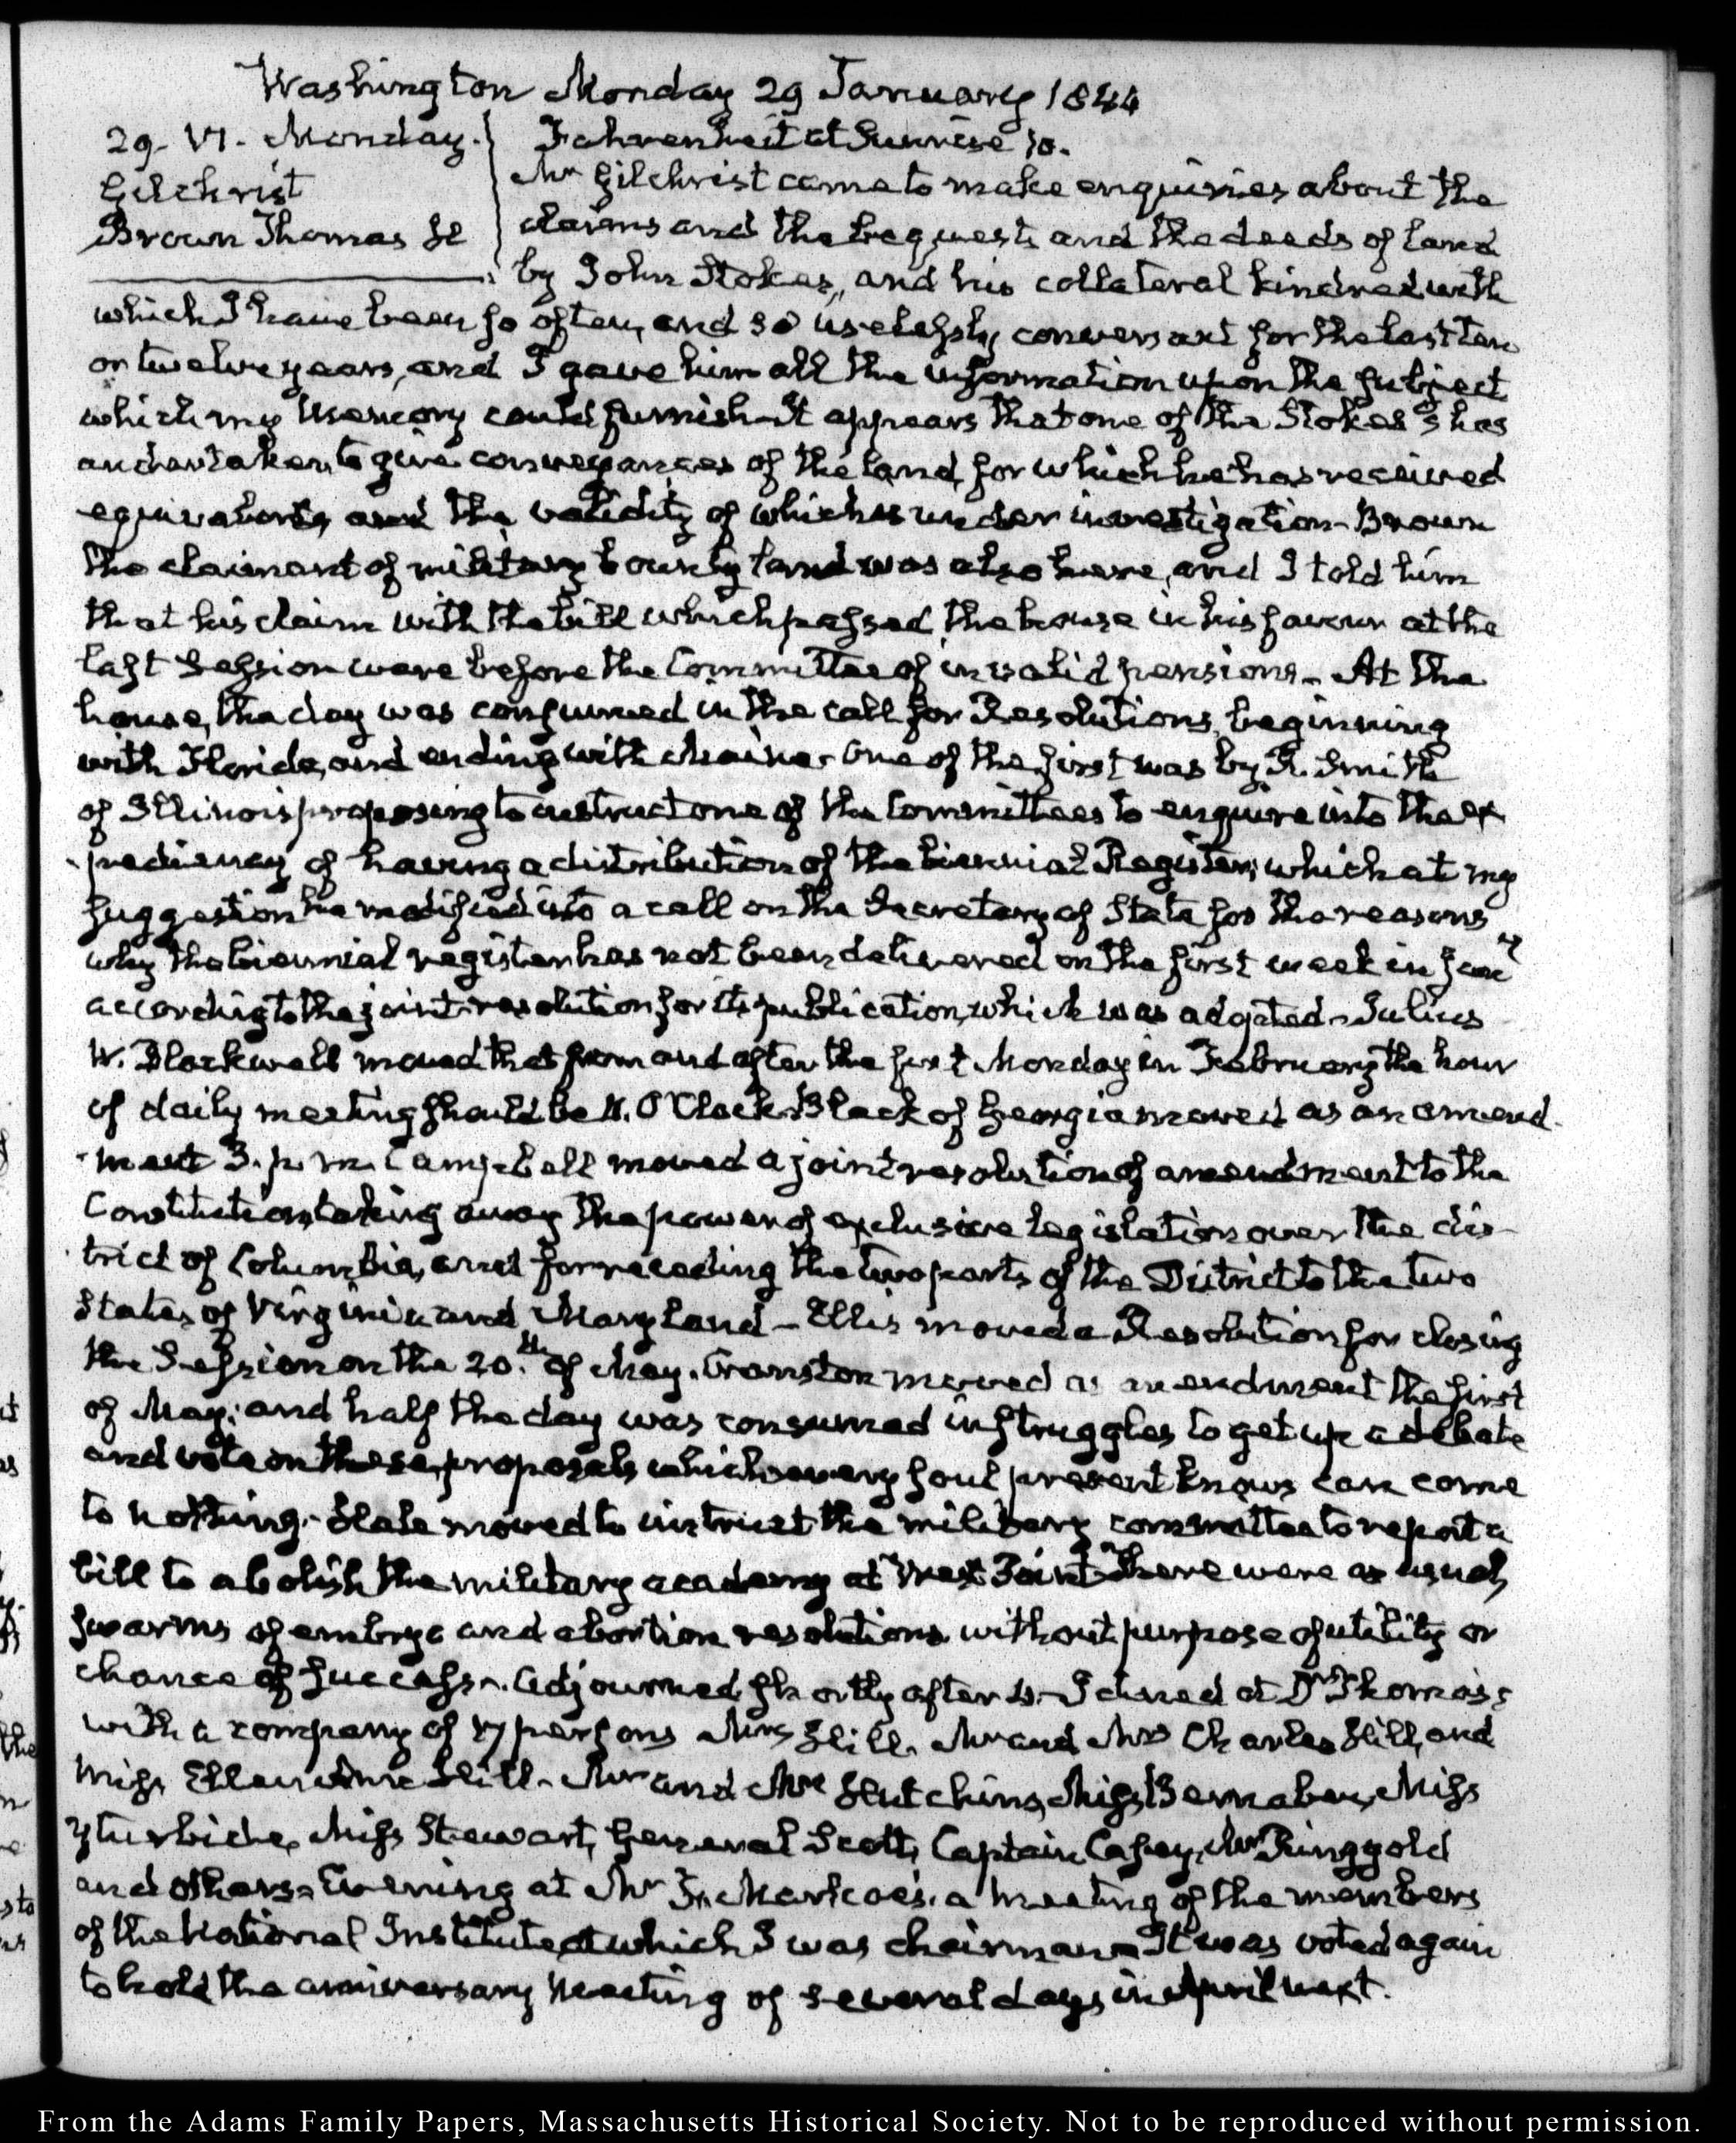 Washington Monday 29 January 1844
29. VI. Monday.
Gilchrist
Brown Thomas
Fahrenheit at Sunrise 10.
Mr Gilchrist came to make enquiries about the
claims and the bequests and the deeds of land
by John Stokes, and his collateral kindred with
which I have been so often, and so uselessly conversant for the last ten
or twelve years, and I gave him all the information upon the subject
which my memory could furnish. It appears that one of the Stokes's has
undertaken to give conveyances of the land, for which he has received
equivalents, and the validity of which is under investigation. Brown
the claimant of military bounty land was also here, and I told him
that his claim with the bill which passed the house in his favour at the
last Session were before the Committee of invalid pensions. At the
house, the day was consumed in the call for Resolutions, beginning
with Florida, and ending with Maine. One of the first was by R. Smith
of Illinois proposing to instruct one of the Committees to enquire into the ex
pediency of having a distribution of the biennial Register, which at my
suggestion he modified into a call on the Secretary of State for the reasons
why the biennial register has not been delivered on the first week in Jany
according to the joint resolution for its publication, which was adopted. Julius
W. Blackwell moved that from and after the first Monday in February the hour
of daily meeting should be 11. O'Clock. Black of Georgia moved as an amend-
-ment 3. p.m. Campbell moved a joint resolution of amendment to the
Constitution, taking away the power of exclusive legislation over the dis-
trict of Columbia, and for receding the two parts of the District to the two
States of Virginia and Maryland – Ellis moved a Resolution for closing
the Session on the 20.th of May. Cranston moved as amendment the first
of May; and half the day was consumed in struggles to get up a debate
and vote on these proposals which every soul present knows can come
to nothing. Hale moved to instruct the military committee to report a
bill to abolish the military academy at West Point. There were as usual,
swarms of embryo and abortion resolutions without purpose of utility or
chance of success. Adjourned shortly after 3. I dined at Dr Thomas's
with a company of 17 persons Mrs Hill. Mr and Mrs Charles Hill, and
Miss Ellen Hill. Mr and Mrs Hutchins, Miss Bernabeu, Miss
Yturbide, Miss Stewart, General Scott, Captain Casey, Mr Ringgold
and others. Evening at Mr F. Markoe's. a meeting of the members
of the National Institute, at which I was chairman. It was voted again
to hold the anniversary meeting of several days in April next.
From the Adams Family Papers, Massachusetts Historical Society. Not to be reproduced without permission.